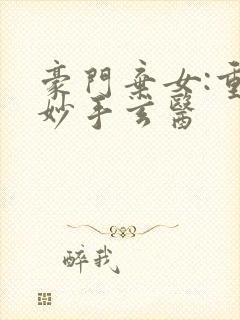 豪門棄女:重
妙手玄醫
醉我